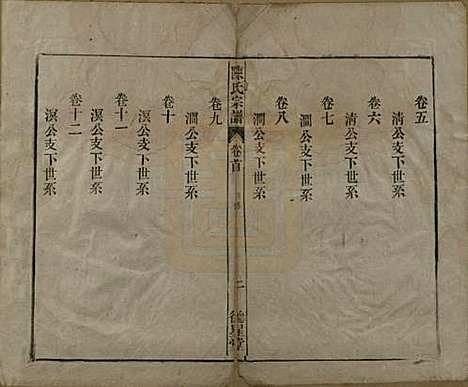 卷五
清公支下世系
卷六
清公支下世系
卷七
澗公支下世系
卷八
澗公支下世系
陳氏宗譜
卷首
二
德星堂
卷九
澗公支下世系
卷十
溟公支下世系
卷十一
溟公支下世系
卷十二
溟公支下世系